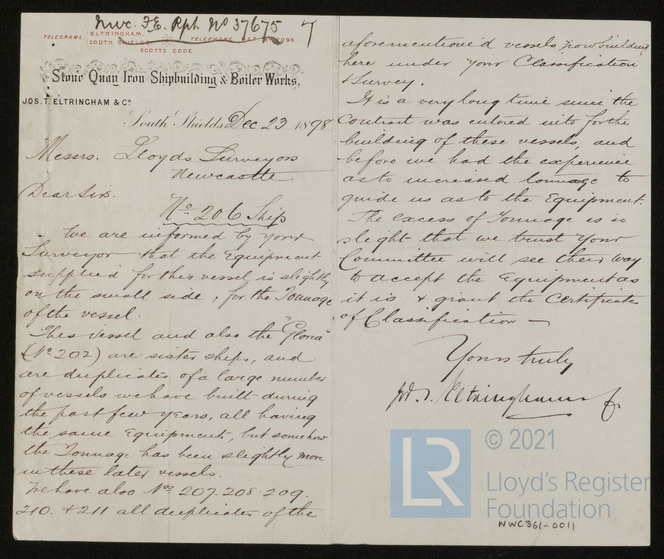 Nwc. F.E. Rpt. No 37675
7
TELEGRAMS.
ELTRINGHAM,
SOUTH SHIELDS
TELEPHONE
SCOTTS CODE
Stone Quay Iron Shipbuilding & Boiler Works,
JOS. T. ELTRINGHAM & Co
South Shields Dec 23 1898
Messrs. Lloyds Surveyors
Newcastle
Dear Sir.
No 206 Ship
We are informed by your
Surveyor that the Equipment
supplied for this vessel is slightly
on the small side, for the Tonnage
of the vessel.
This vessel and also the "Gloria"
(No 202) are sister ships, and
are duplicates of a large number
of vessels we have built during
the past few years, all having
the same Equipment, but somehow
the Tonnage has been slightly more
in these later vessels.
We have also Nos 207. 208. 209.
210. & 211 all duplicates of the
aforementioned vessels now building
here under your Classification
& Survey.
It is a very long time since the
Contract was entered into for the
building of these vessels, and
before we had the experience
as to increased tonnage to
guide us as to the Equipment.
The excess of Tonnage is so
slight that we trust your
Committee will see their way
to accept the Equipment as
it is & grant the Certificates
of Classification —
Yours truly
Jos. T. Eltringham
LR
© 2021
Lloyd's Register
Foundation
NWC861-0011